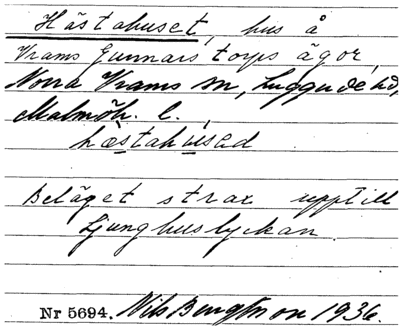 Hästahuset, hus å
Vrams Gunnarstorps ägor,
Norra Vrams sn, Luggude hd,
Malmöh. l.,
hæstahused
Beläget strax upptill
Ljunghuslyckan.
Nr 5694. Nils Bengtsson 1936.